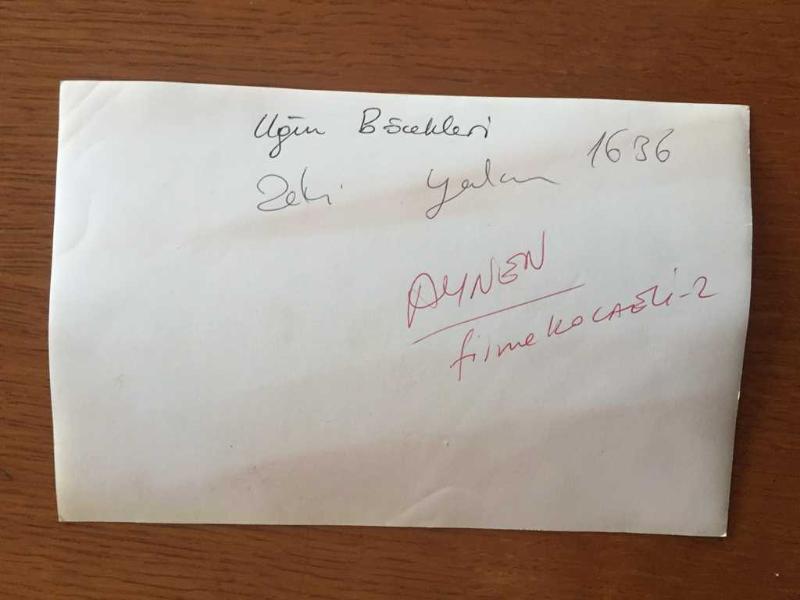 Uğur Böcekleri
Zeki Yalın 1636
AYNEN
firmeKOCAELİ-2